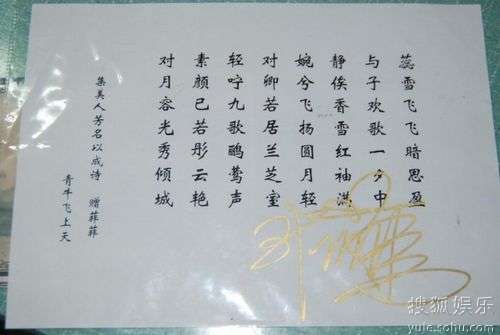 蕊雪飞飞暗思盈
与子欢歌一夕中
静俟香雪红袖满
婉兮飞扬圆月轻
对卿若居兰芝室
轻咛九歌鹂莺声
素颜已若彤云艳
对月容光秀倾城
集美人芳名以成诗 赠菲菲
青牛飞上天
搜狐娱乐
yule.sohu.com